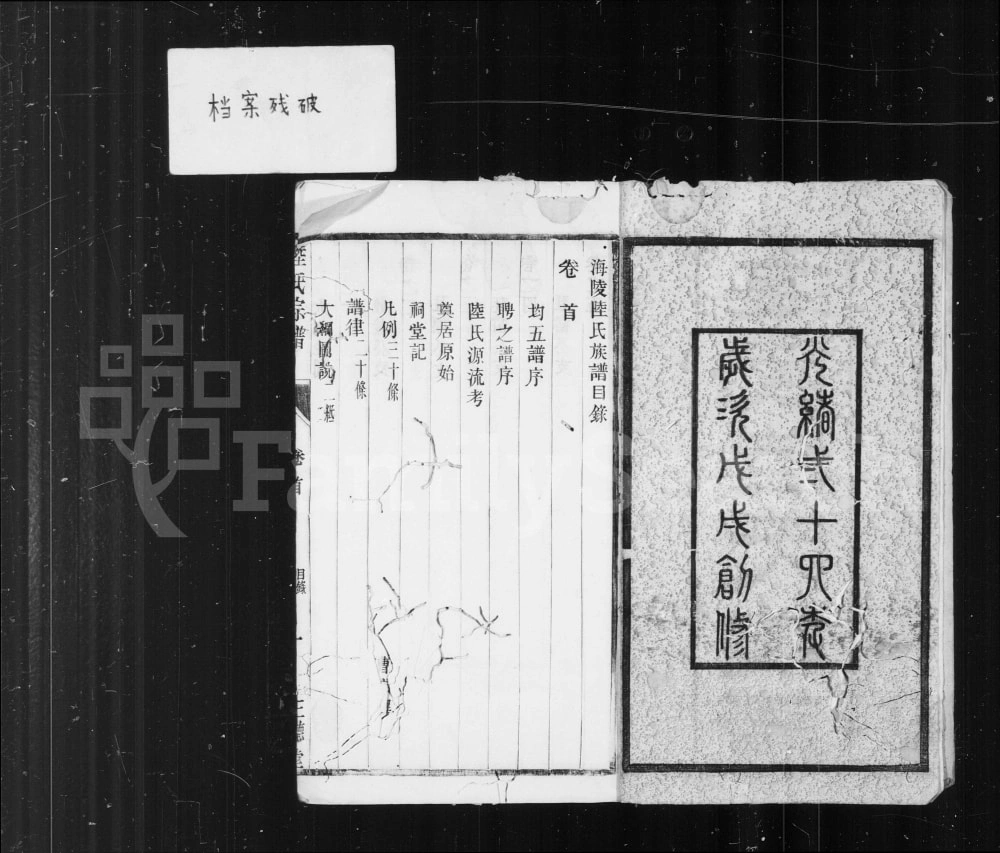 档案残破
光緒弍十四年
歲次戊戌創修
海陵陸氏族譜目錄
卷首
均五譜序
聘之譜序
陸氏源流考
奠居原始
祠堂記
凡例三十條
譜律二十條
大綱圖說二紙
陸氏宗譜
卷首
目錄
一
三德堂
FamilyS